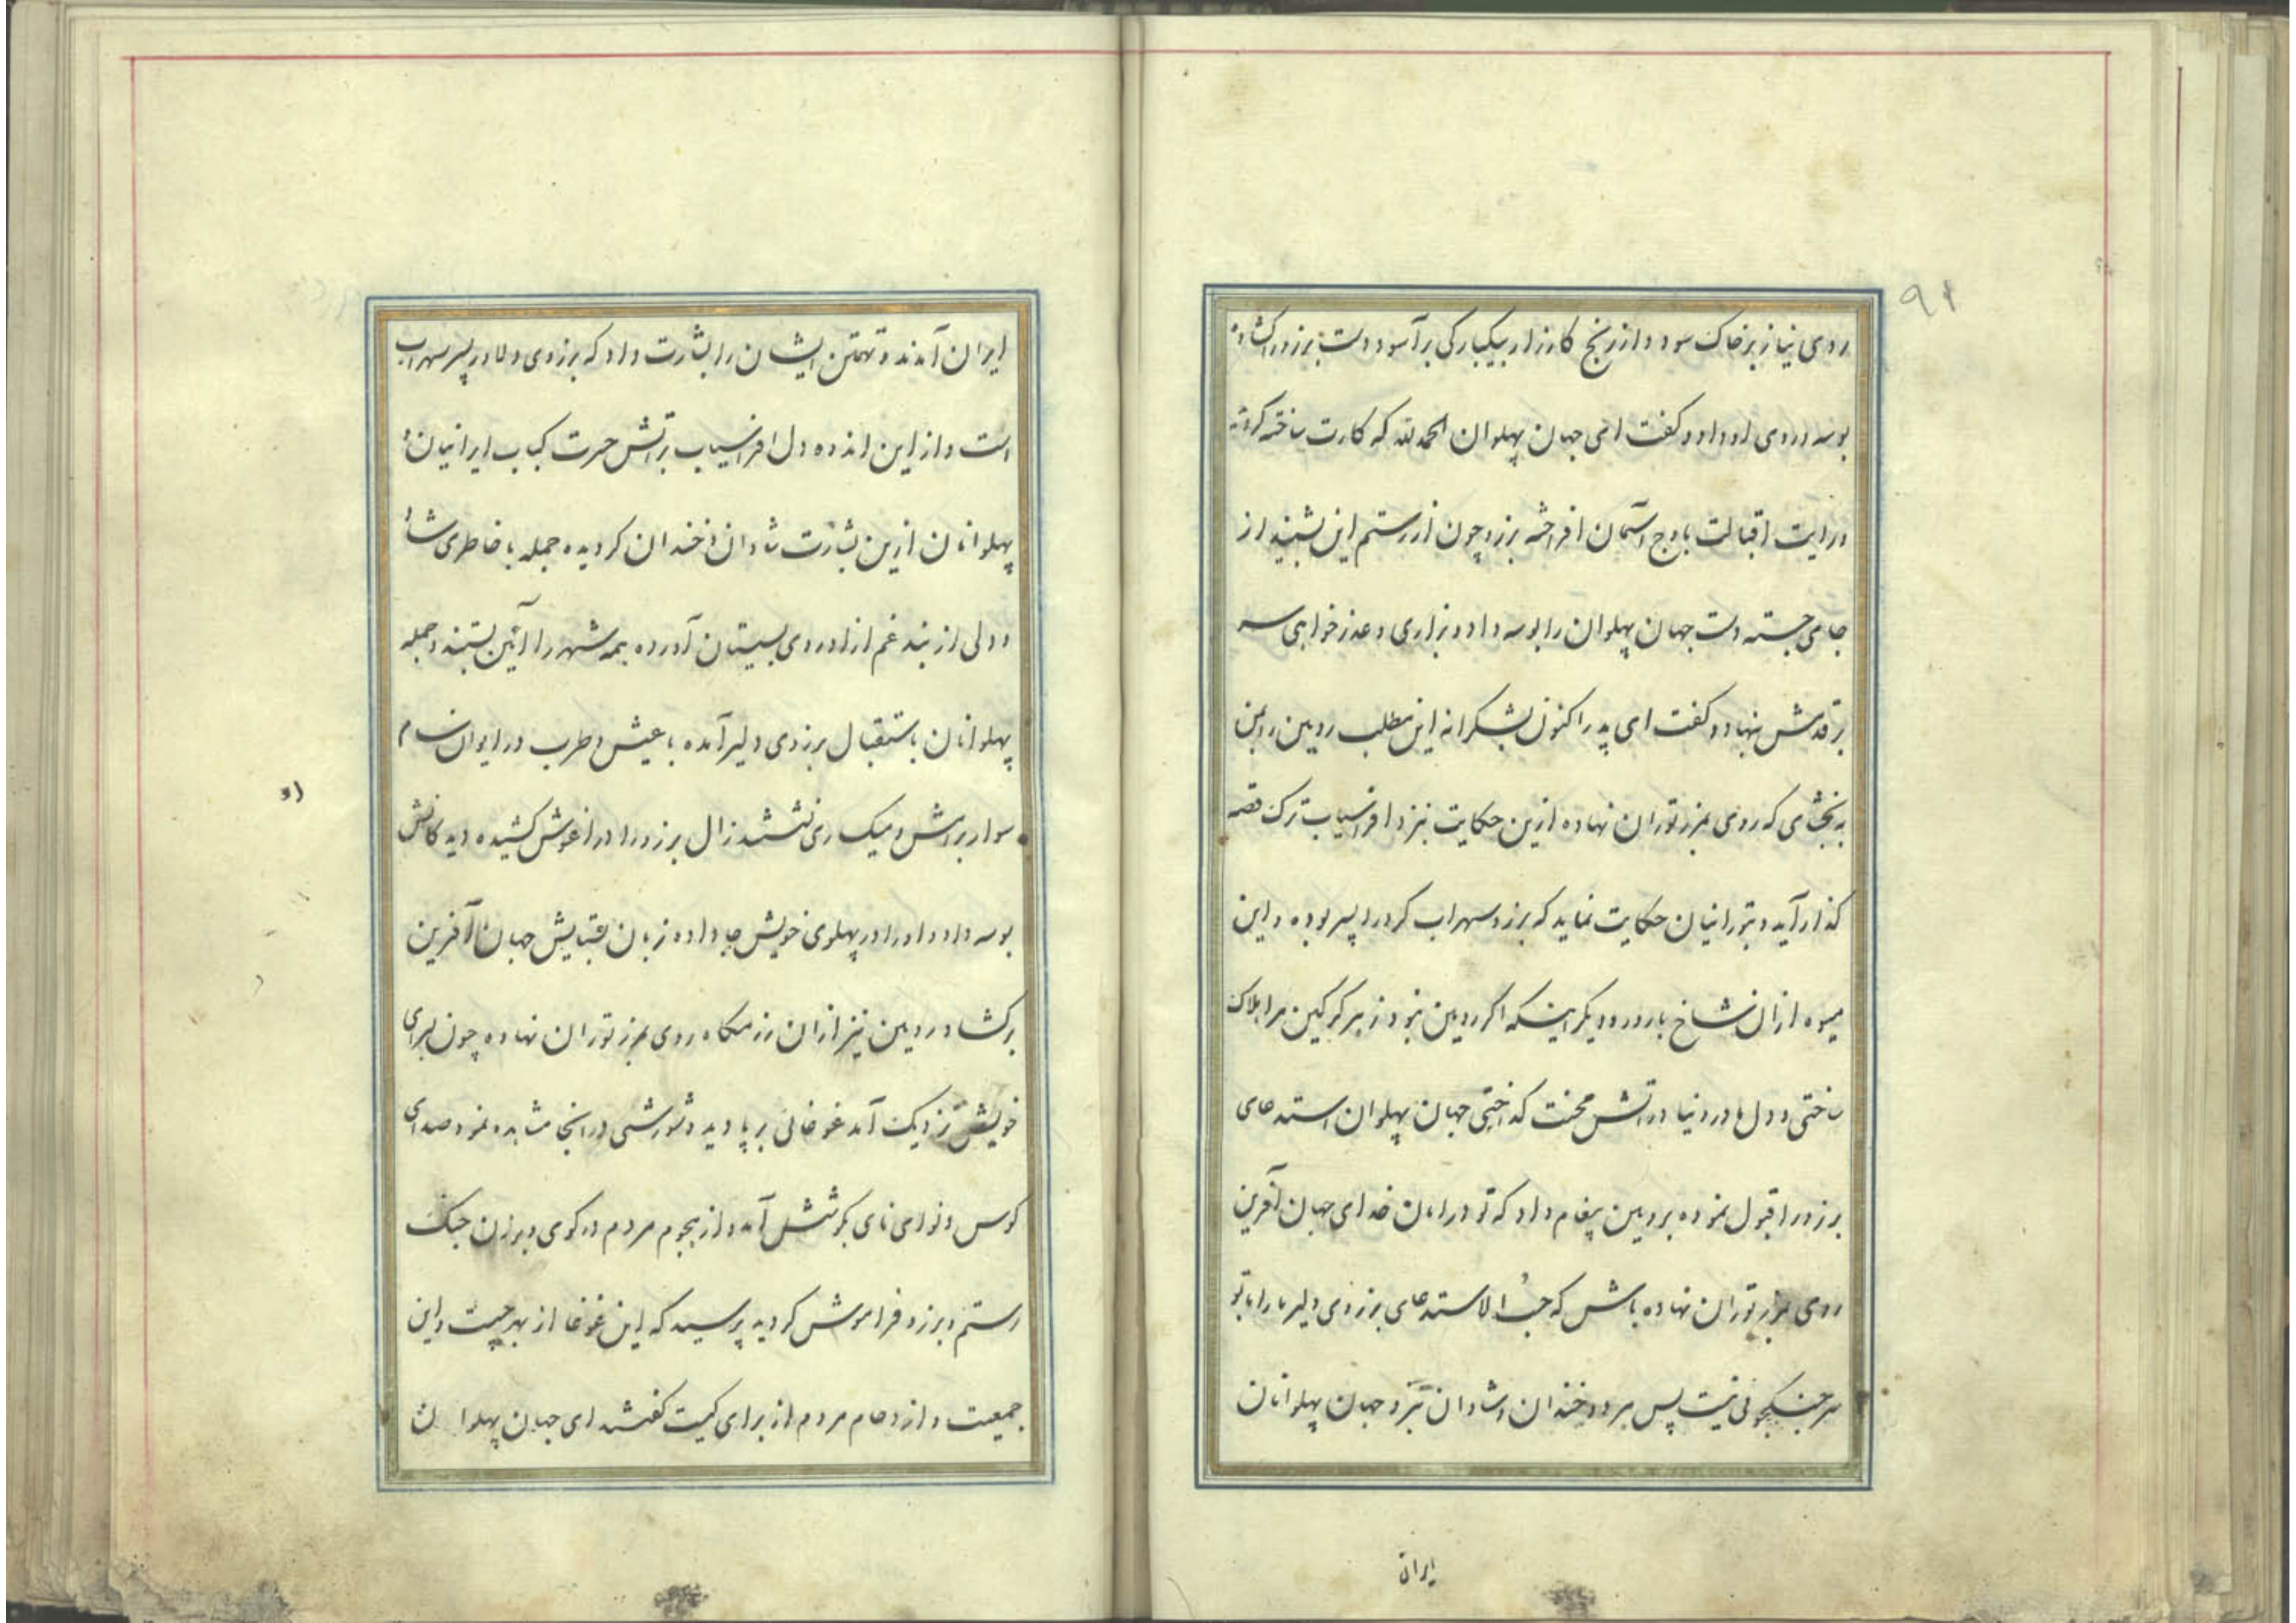 ۹۱
روی نیاز بر خاک سود و از رنج کارزار بیکبارکی برآسود دست برزو را کشاده
بوسه بر روی او داد و کفت ای جهان پهلوان الحمدلله که کارت ساخته کردید
و رایت اقبالت باوج آسمان افراخته برزو چون از رستم این بشنید از
جای جسته دست جهان پهلوان را بوسه داد و بزاری و عذر خواهی سر
بر قدمش نهاد و کفت ای پدر اکنون بشکرانه این مطلب رویین را بمن
به بخشای که روی بمرز توران نهاده ازین حکایت نیزد افراسیاب ترک قصه
کذار آید و بتورانیان حکایت نماید که برزو سهراب کرد را پسر بوده و این
میوه ازان شاخ بارور و دیکر اینکه اکر رویین نبود زهر کرکین مرا هلاک
ساختی و دل مادر و نیا در آتش محنت کداختی جهان پهلوان استدعای
برزو را قبول نموده برویین پیغام داد که تو در امان خدای جهان آفرین
روی بمرز توران نهاده باش که حسب الاستدعای برزوی دلیر ما را با تو
سر جنکجوئی نیست پس هر دو خندان و شادان نیزد جهان پهلوانان
ایران
ایران آمدند و تهمتن ایشان را بشارت داد که برزوی دلاور پسر سهراب
است و از این اندوه دل افراسیاب بر آتش حسرت کباب ایرانیان و
پهلوانان ازین بشارت شادان و خندان کردیده جمله با خاطری شاد
و دلی از بند غم ازاد روی بسیستان آورده همه شهر را آئین بستند و جمله
پهلوانان باستقبال برزوی دلیر آمده با عیش و طرب در ایوان سام
سوار برامش و میکساری نشستند زال برزو را در اغوش کشیده دیدکانش
بوسه داد و او را در پهلوی خویش جا داده زبان بستایش جهان آفرین
برکشاد رویین نیز ازان رزمکاه روی بمرز توران نهاده چون بسرای
خویش نزدیک آمد غوغائی بر پا دید و شورشی در انجا مشاهده نمود صدای
کوس و نوای نای بکوشش آمد و از هجوم مردم در کوی و برزن جنک
رستم و برزو فراموش کردید پرسید که این غوغا از بهر چیست و این
جمعیت و ازدحام مردم از برای کیست کفتند ای جهان پهلوان